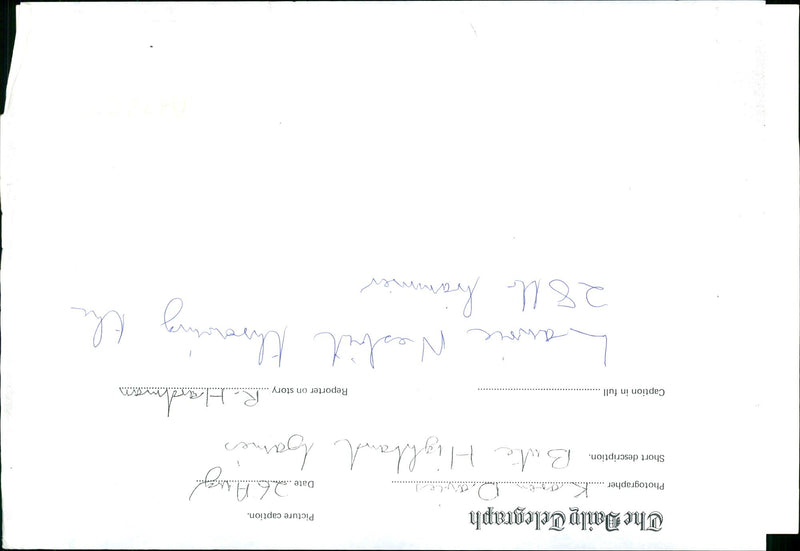 The Daily Telegraph
Picture caption.
Photographer Karen Davies Date 26 Aug
Short description. Bute Highland Games
Caption in full Reporter on story R. Hardman
Lawrie Nesbit throwing the
28 lb hammer